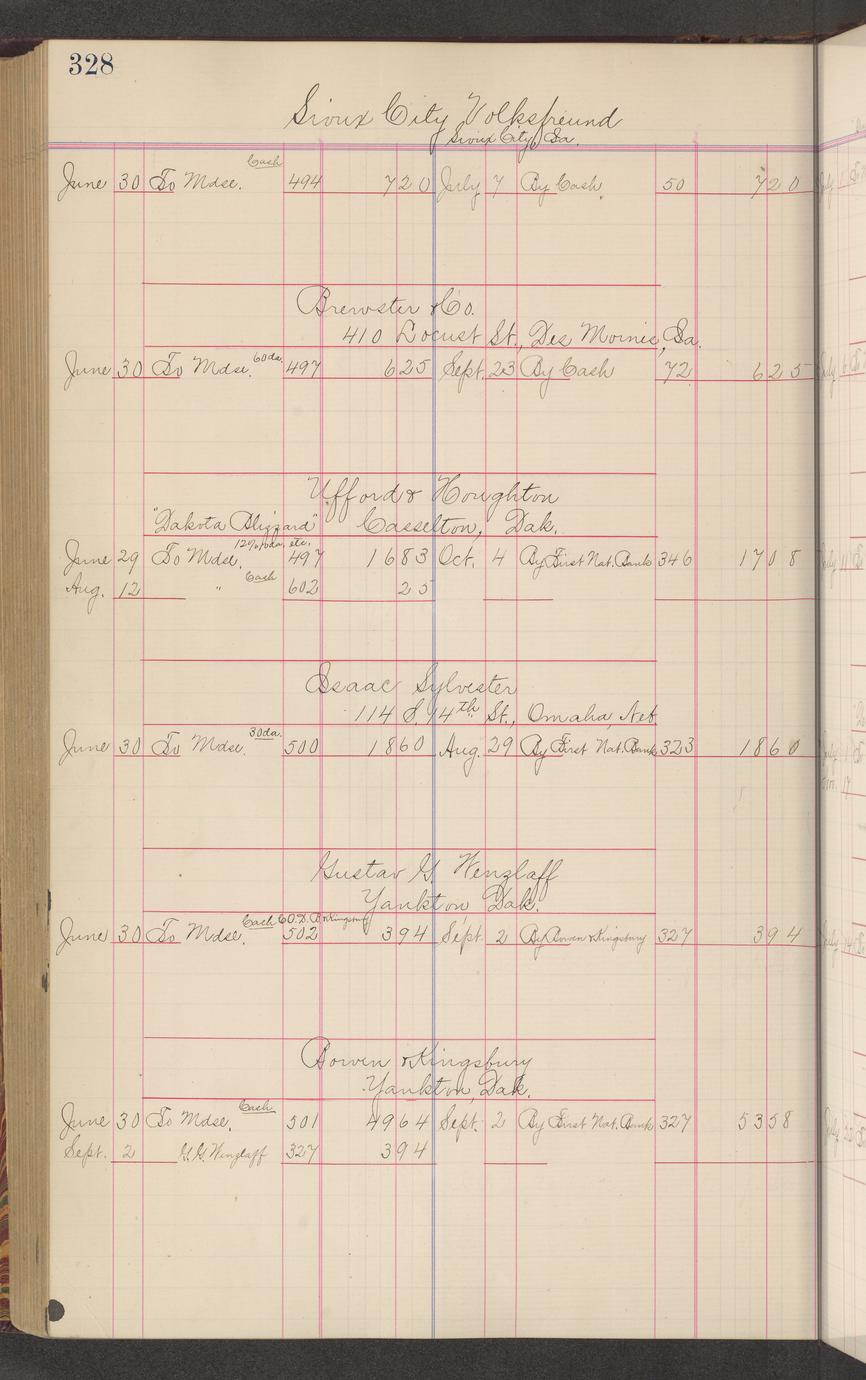 328
Sioux City Volksfreund
Sioux City, Ia.
Cash
June 30 To Mdse. 494 720 July 7 By Cash 50 720
Brewster & Co.
410 Locust St., Des Moines, Ia.
June 30 To Mdse. 60 da. 497 625 Sept. 23 By Cash 72 625
Ufford & Houghton
"Dakota Blizzard" Casselton, Dak.
June 29 To Mdse. 497 1683 Oct. 4 By First Nat. Bank 346 1708
Aug. 12 " Cash 602 25
Isaac Sylvester
114 S. 14th St., Omaha, Neb.
June 30 To Mdse. 30 da. 500 1860 Aug. 29 By First Nat. Bank 323 1860
Gustav G. Wenzlaff
Yankton, Dak.
Cash C.O.D. B & Kingsbury
June 30 To Mdse. 502 394 Sept. 2 By Bowen & Kingsbury 327 394
Bowen & Kingsbury
Yankton, Dak.
June 30 To Mdse. Cash 501 4964 Sept. 2 By First Nat. Bank 327 5358
Sept. 2 G. G. Wenzlaff 327 394